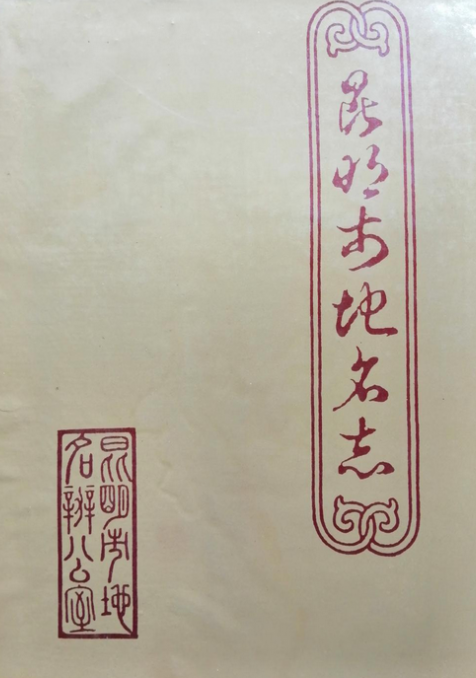 昆明市地名志
昆明市地
名辦公室